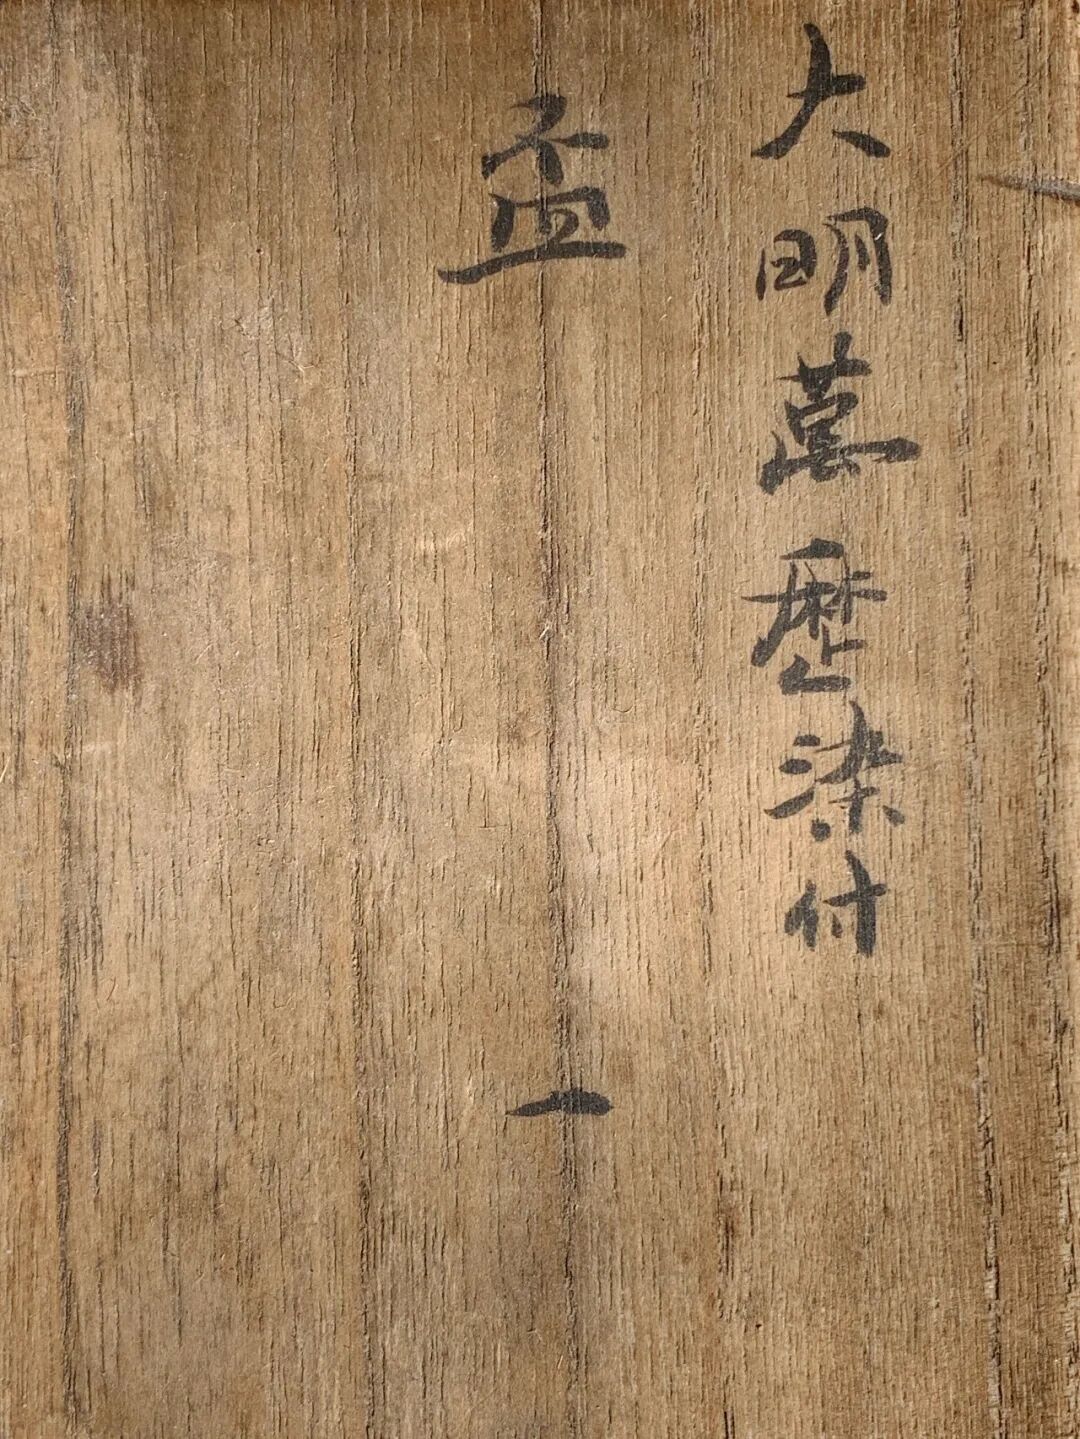 大明萬歷染付
盃
一